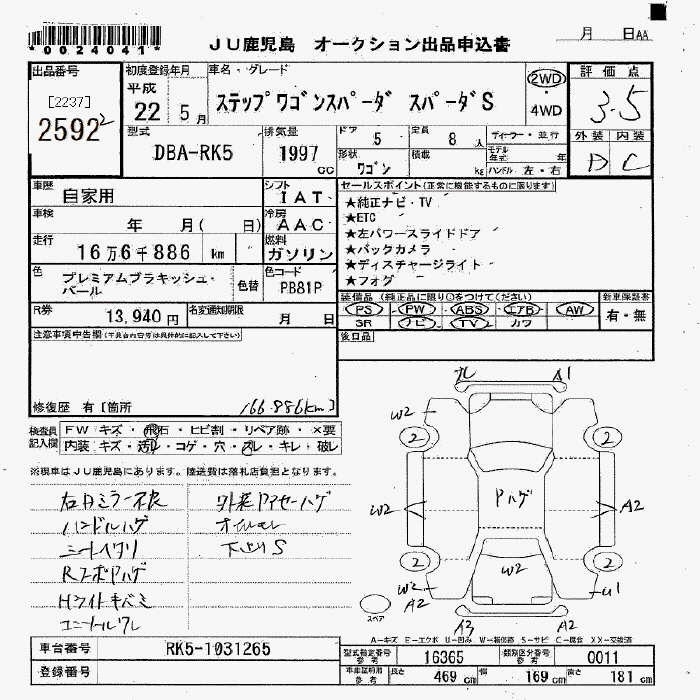 *0024041*
JU鹿児島 オークション出品申込書
月 日AA
出品番号
[2237]
2592 2
初度登録年月
平成
22 5月
車名・グレード
ステップワゴンスパーダ スパーダS
2WD
・
4WD
評価点
3.5
外装 内装
D C
型式
DBA-RK5
排気量
1997 CC
ドア
5
定員
8 人
ディーラー・並行
形状
ワゴン
積載
kg
モデル年式 年
ハンドル 左・右
車歴
自家用
シフト
IAT
車検
年 月( 日)
冷房
AAC
走行
16万6千886 km
燃料
ガソリン
色
プレミアムブラキッシュ・パール
色替
色コード
PB81P
R券
13,940円
名変通知期限
月 日
セールスポイント(正常に機能するものに限ります)
★純正ナビ・TV
★ETC
★左パワースライドドア
★バックカメラ
★ディスチャージライト
★フォグ
装備品(純正品に限り○をつけてください)
PS PW ABS エアB AW
SR ナビ TV カワ
新車保証書
有・無
後日品
注意事項申告欄(不具合内容等は具体的に記入して下さい)
修復歴 有[箇所
166.886km]
検査員記入欄
FW キズ・飛石・ヒビ割・リペア跡・×要
内装 キズ・汚れ・コゲ・穴・スレ・キレ・破レ
※現車はJU鹿児島にあります。陸送費は落札店負担となります。
ハンドルハゲ
下廻りS
A1
W2
2
2
W2
Pハゲ
A2
2
2
W2
W2
A2
U1
A2
スペア
A-キズ E-エクボ U-凹み W-補修跡 S-サビ C-腐食 XX-交換済
車台番号
RK5-1031265
登録番号
型式指定番号参考
16365
類別区分番号参考
0011
車庫証明用参考
長さ 469 cm
幅 169 cm
高さ 181 cm